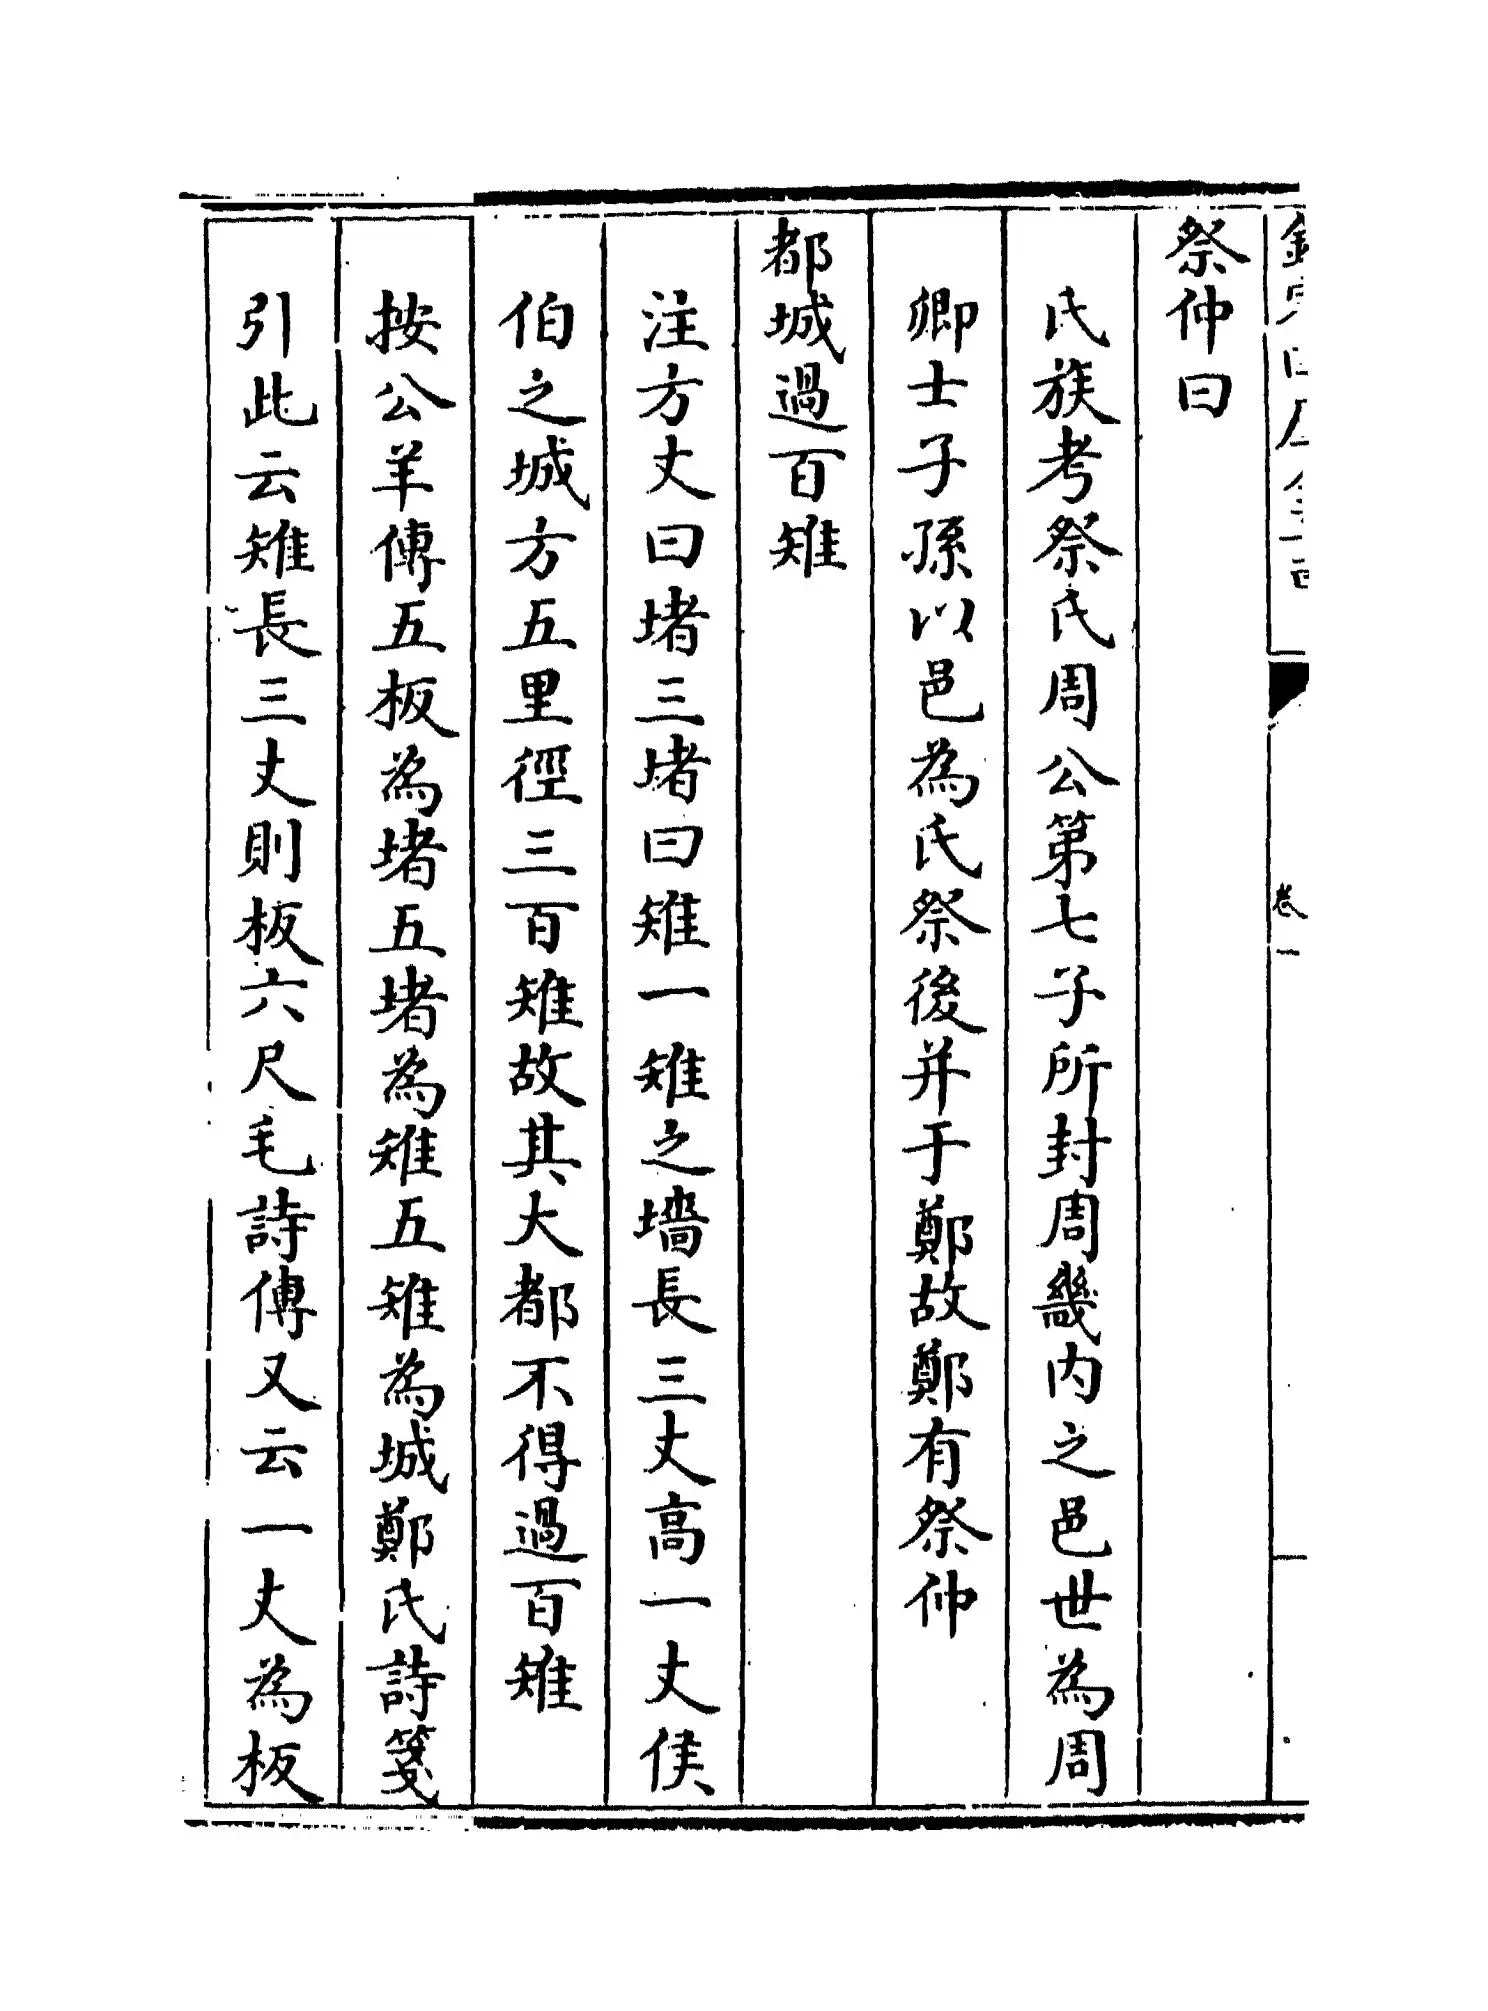 祭仲曰
氏族考祭氏周公第七子所封周畿内之邑世為周
卿士子孫以邑為氏祭後并于鄭故鄭有祭仲
都城過百雉
注方丈曰堵三堵曰雉一雉之墻長三丈高一丈侯
伯之城方五里徑三百雉故其大都不得過百雉
按公羊傳五板為堵五堵為雉五雉為城鄭氏詩箋
引此云雉長三丈則板六尺毛詩傳又云一丈為板
卷一